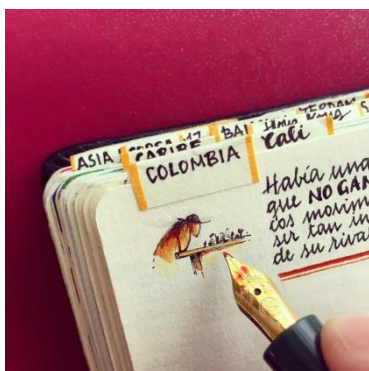 ASIA
CARIBE
BAI
Cali
COLOMBIA
Había una
que NO GAN
cos movim
ser tan in
de su riva